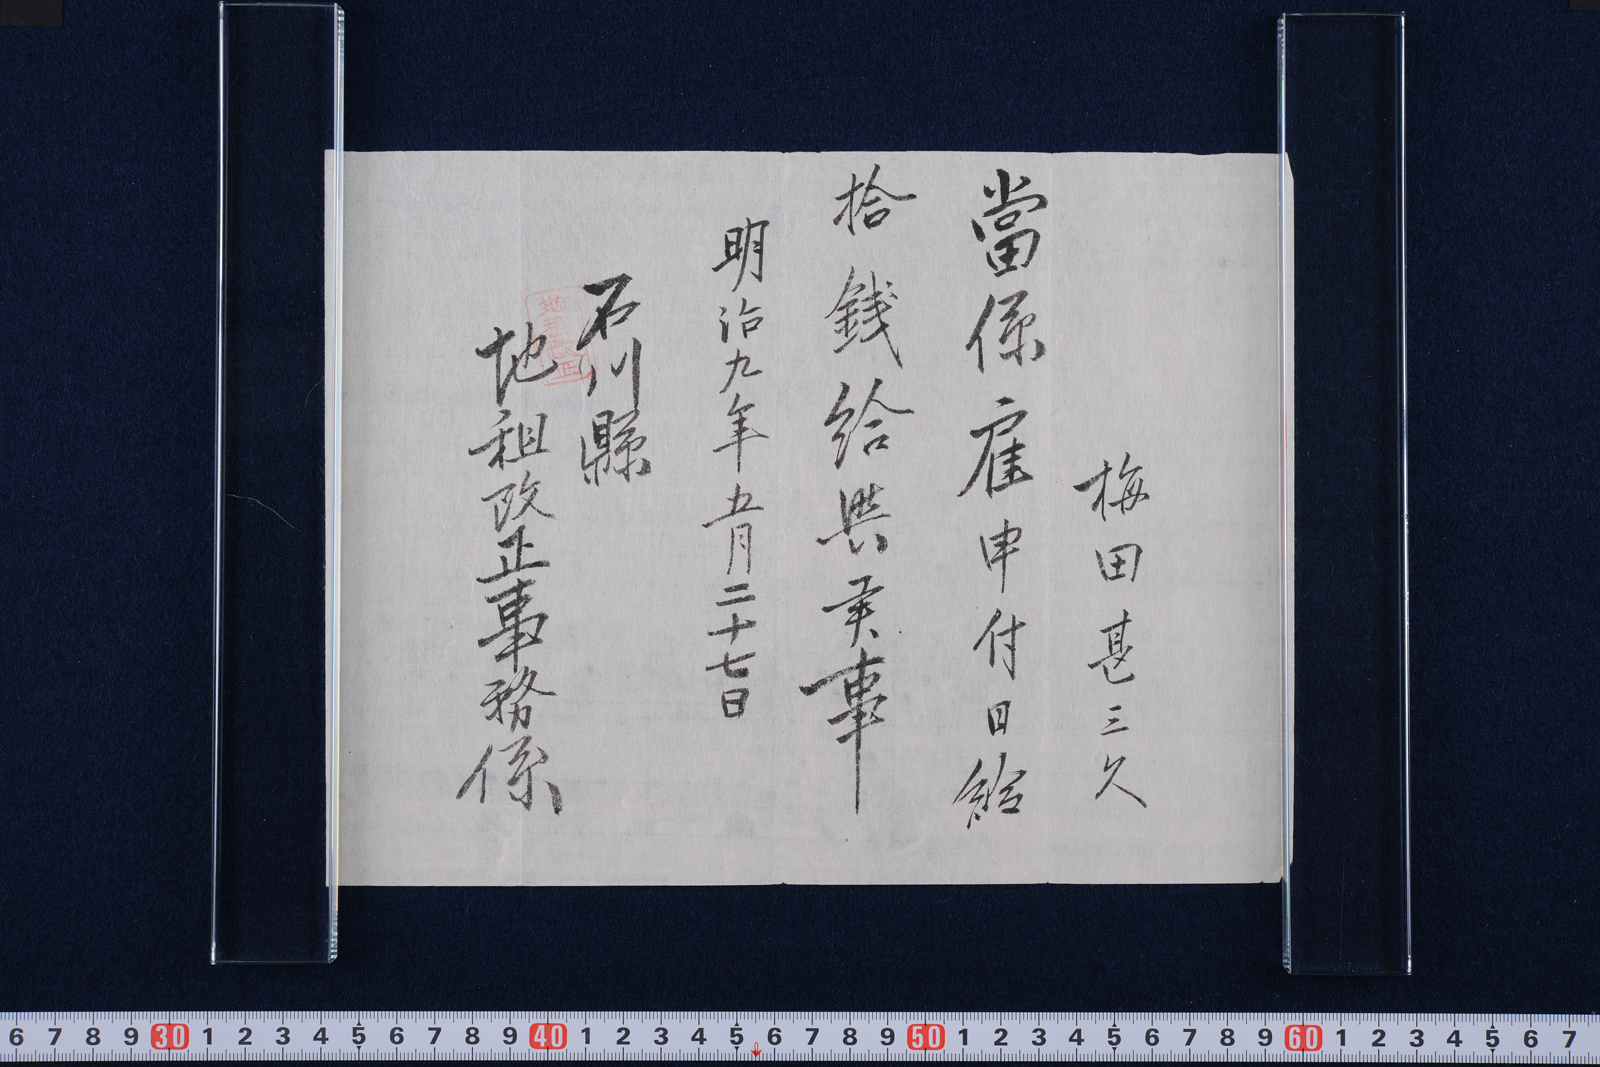 梅田甚三久
當係雇申付日給
拾錢給與候事
明治九年五月二十七日
石川縣
地租改正事務係
6 7 8 9 30 1 2 3 4 5 6 7 8 9 40 1 2 3 4 5 6 7 8 9 50 1 2 3 4 5 6 7 8 9 60 1 2 3 4 5 6 7